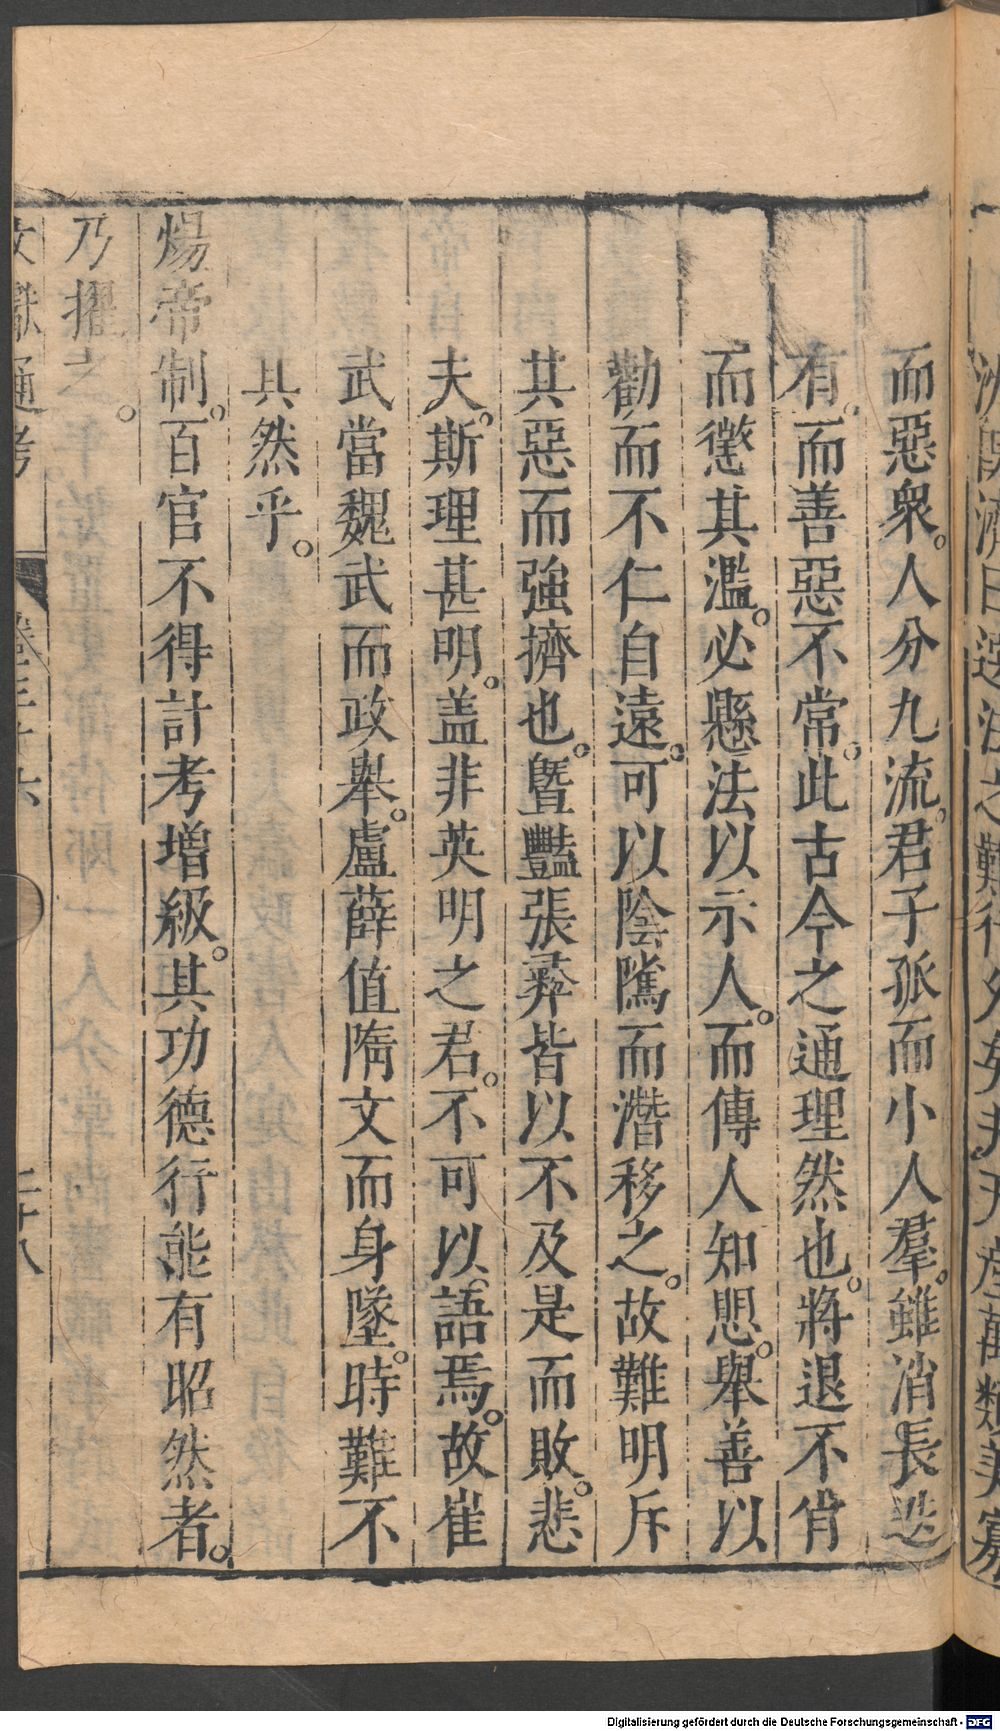 而惡衆。人分九流。君子孤而小人羣。雖消長迭
有。而善惡不常。此古今之通理然也。將退不肖
而懲其濫。必懸法以示人。而傳人知愳。舉善以
勸而不仁自遠。可以陰隲而潛移之。故難明斥
其惡而強擠也。曁豔張彛皆以不及是而敗。悲
夫。斯理甚明。盖非英明之君。不可以語焉。故崔
武當魏武而政舉。盧薛值隋文而身墜。時難不
其然乎。
煬帝制。百官不得計考增級。其功德行能有昭然者。
乃擢之。
文獻通考 卷三十六 二十八
Digitalisierung gefördert durch die Deutsche Forschungsgemeinschaft - DFG